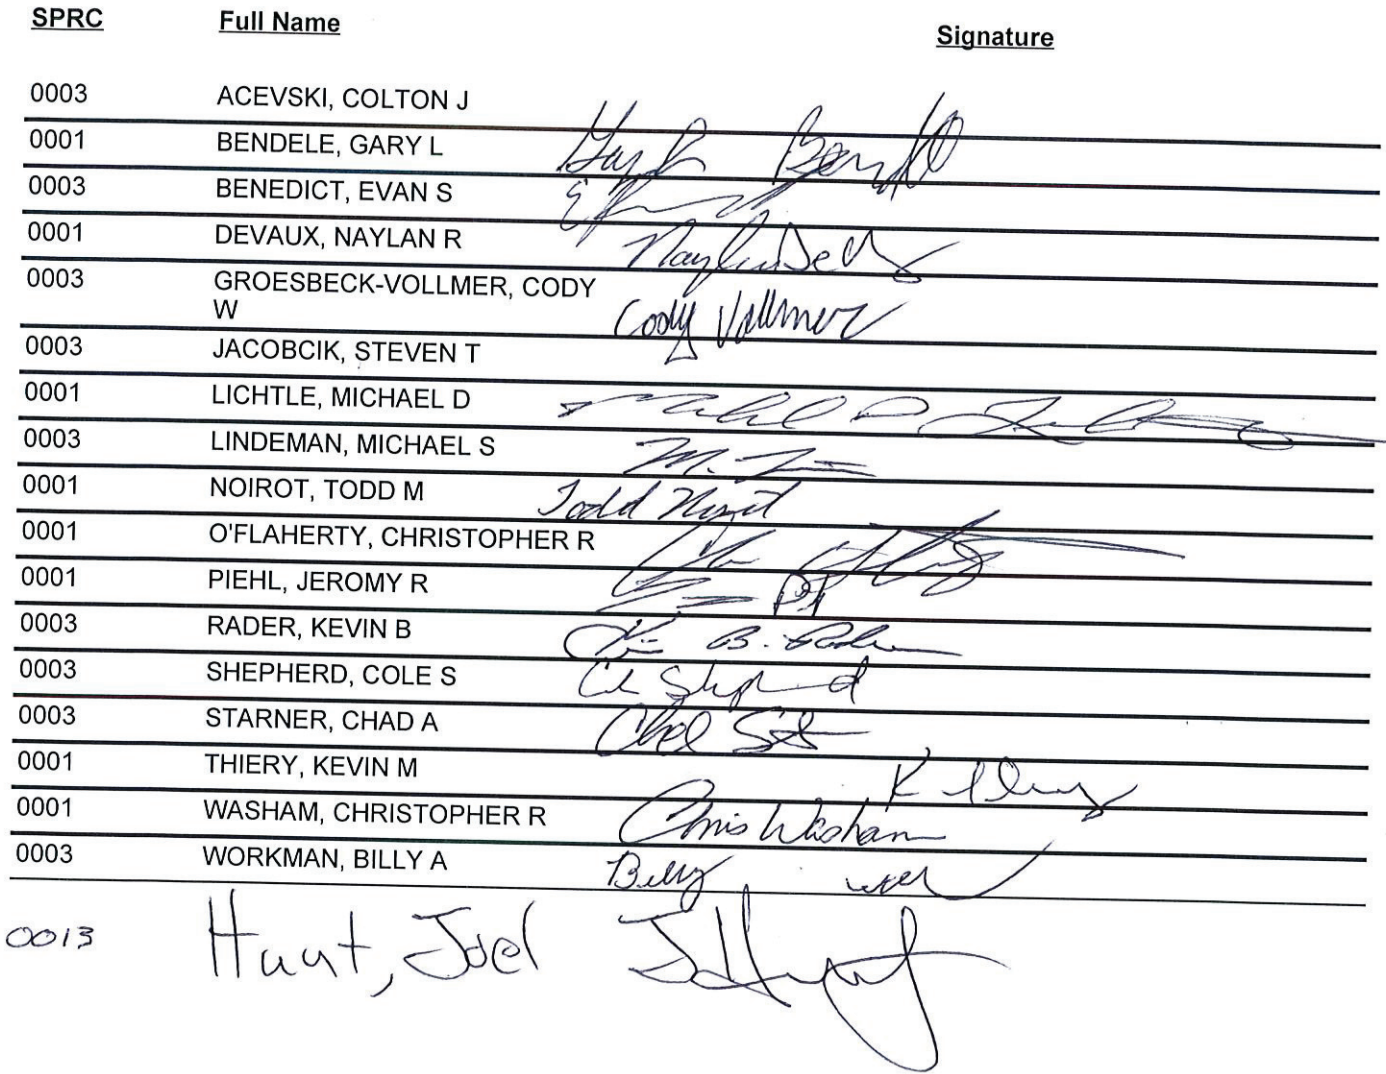 SPRC Full Name Signature
0003 ACEVSKI, COLTON J
0001 BENDELE, GARY L
0003 BENEDICT, EVAN S
0001 DEVAUX, NAYLAN R
0003 GROESBECK-VOLLMER, CODY
W Cody Vollmer
0003 JACOBCIK, STEVEN T
0001 LICHTLE, MICHAEL D
0003 LINDEMAN, MICHAEL S
0001 NOIROT, TODD M Todd
0001 O'FLAHERTY, CHRISTOPHER R
0001 PIEHL, JEROMY R
0003 RADER, KEVIN B B.
0003 SHEPHERD, COLE S
0003 STARNER, CHAD A
0001 THIERY, KEVIN M
0001 WASHAM, CHRISTOPHER R Chris Washam
0003 WORKMAN, BILLY A Billy
0013 Huut, Joel